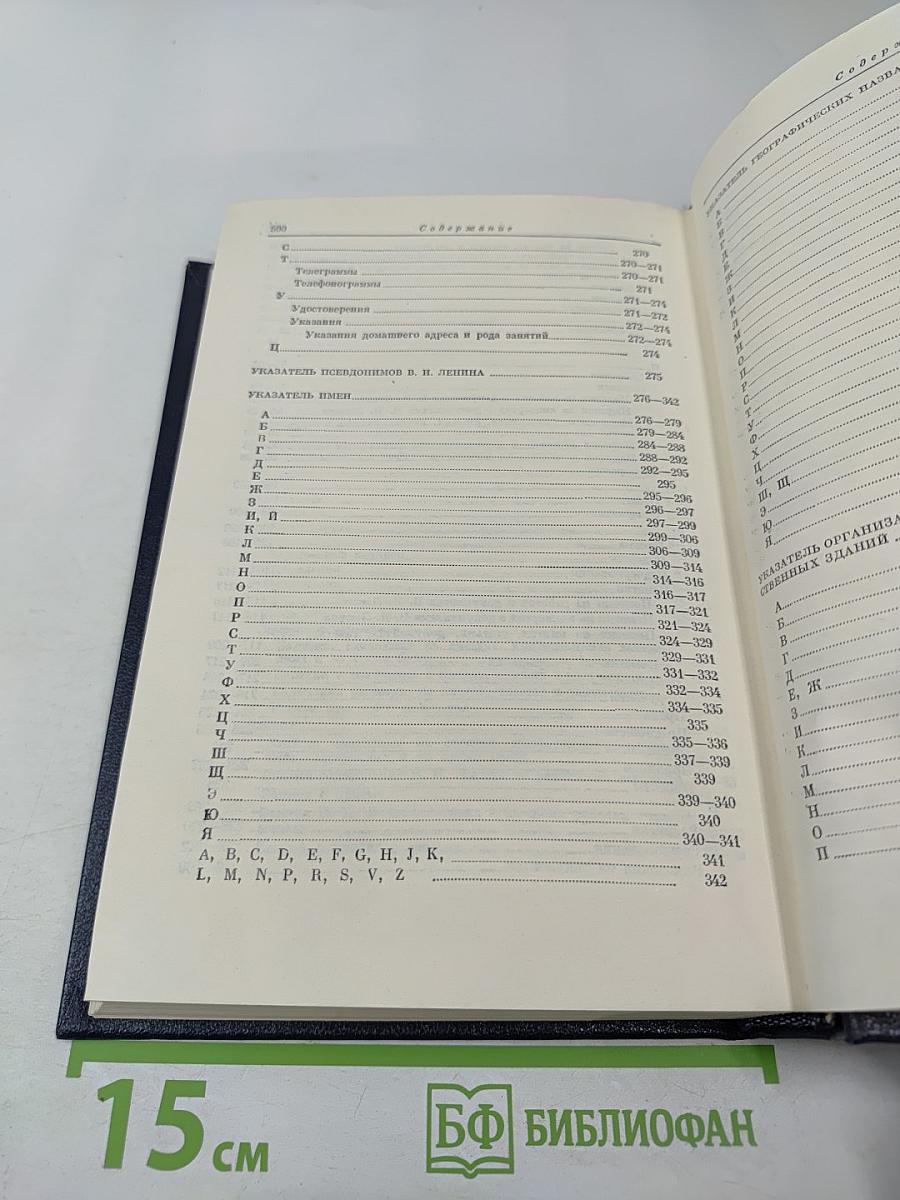 500 Содержание
С 270
Т 270—271
Телеграммы 270—271
Телефонограммы 271
У 271—274
Удостоверения 271—272
Указания 272—274
Указания домашнего адреса и рода занятий 272—274
Ц 274
УКАЗАТЕЛЬ ПСЕВДОНИМОВ В. И. ЛЕНИНА 275
УКАЗАТЕЛЬ ИМЕН 276—342
А 276—279
Б 279—284
В 284—288
Г 288—292
Д 292—295
Е 295
Ж 295—296
З 296—297
И, Й 297—299
К 299—306
Л 306—309
М 309—314
Н 314—316
О 316—317
П 317—321
Р 321—324
С 324—329
Т 329—331
У 331—332
Ф 332—334
Х 334—335
Ц 335
Ч 335—336
Ш 337—339
Щ 339
Э 339—340
Ю 340
Я 340—341
A, B, C, D, E, F, G, H, J, K, 341
L, M, N, P, R, S, V, Z 342
УКАЗАТЕЛЬ ГЕОГРАФИЧЕСКИХ
А
Б
В
Г
Д
Е
Ж
З
И
К
Л
М
Н
О
П
Р
С
Т
У
Ф
Х
Ц
Ч
Ш, Щ
Э
Ю
Я
УКАЗАТЕЛЬ
СТВЕННЫХ ЗДАНИЙ
А
Б
В
Г
Д
Е, Ж
З
И
К
Л
М
Н
О
П
15 см
БФ БИБЛИОФАН